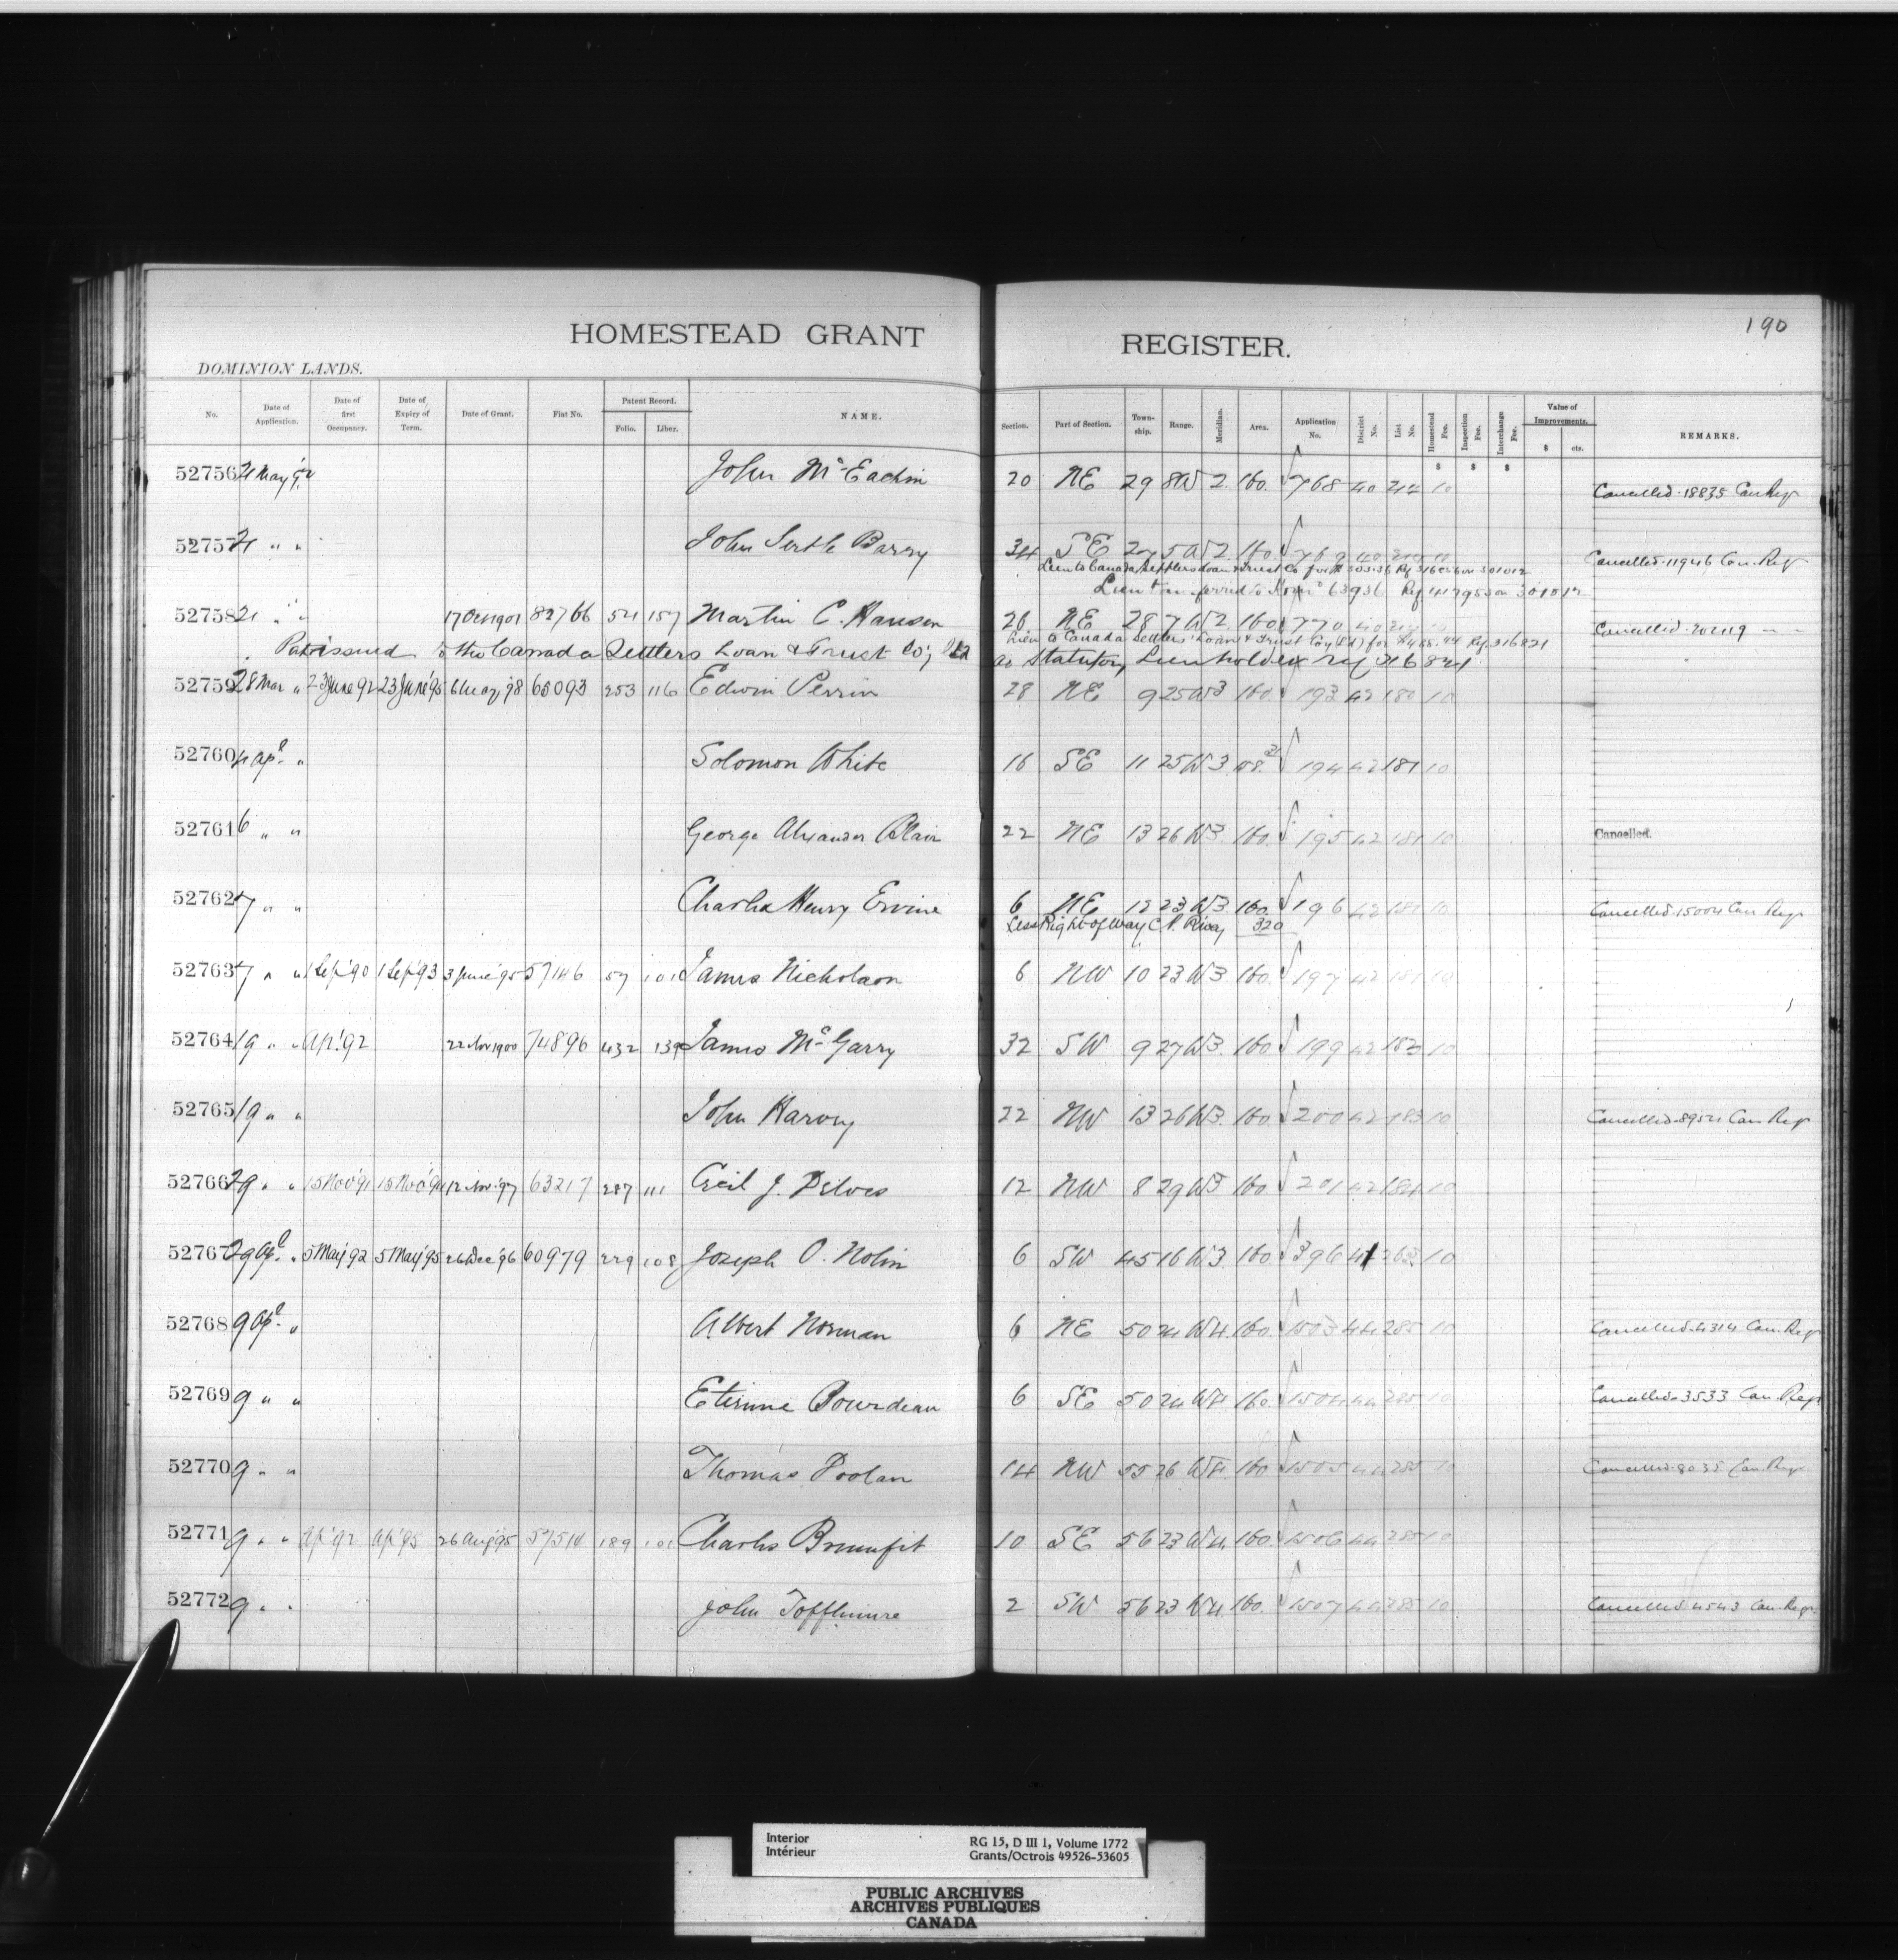 190
HOMESTEAD GRANT REGISTER.
DOMINION LANDS.
No. Date of Application. Date of first Occupancy. Date of Expiry of Term. Date of Grant. Fiat No. Patent Record. Folio. Liber. NAME. Section. Part of Section. Town-ship. Range. Meridian. Area. Application No. District No. List No. Homestead Fee. Inspection Fee. Interchange Fee. Value of Improvements. $ cts. REMARKS.
$ $ $
52756 21 May '92 John McEachin 20 NE 29 8 W 2. 160. 768 40 214 10 Cancelled. 18835 Can Reg
52757 21 " " John Barry 34 SE 5 W 2. 160. 769 40 10 Cancelled. 11946 Can. Reg
Lien to Canada Settlers Loan & Trust Co for
Lien transferred to 63936
52758 21 " " 17 Oct 1901 82766 54 157 Martin C. Hansen 26 NE 28 7 W 2. 160. 770 40 Cancelled
Lien to Canada Settlers' Loan & Trust Coy (Ltd) for $488.94 Ref. 316821
Pat. issued to the Canada Settlers Loan & Trust Co; Ltd as Statutory Lienholder Ref 316821
52759 28 Mar " 23 June 92 23 June '95 6 May, '98 65093 253 116 Edwin Perrin 28 NE 9 25 W 3 160 193 42 180 10
52760 4 Apl. " Solomon White 16 SE 11 25 W 3 158. 194 42 181 10
52761 6 " " George Alexander Blair 22 NE 13 26 W 3. 160. 195 42 181 10 Cancelled.
52762 7 " " Charles Henry Ervine 6 NE 12 23 W 3. 160. 196 42 181 10 Cancelled. 15004 Can Reg
Less Right-of-way C.P. Rway 320
52763 7 " " 1 Sep '90 1 Sep '93 3 June '95 57146 57 101 James Nicholson 6 NW 10 23 W 3 160. 197 42 181 10
52764 19 " " Ap. '92 22 Nov 1900 74896 432 139 James McGarry 32 SW 9 27 W 3. 160. 199 42 183 10
52765 19 " " John Harvey 22 NW 13 26 W 3. 160. 200 42 183 10 Cancelled. 8954 Can Reg
52766 29 " " 15 Nov '91 15 Nov '94 12 Nov. '97 63217 287 111 Cecil J. Delves 12 NW 8 29 W 3 160 201 42 184 10
52767 29 Apl. " 5 May '92 5 May '95 26 Dec '96 60979 229 108 Joseph O. Nolin 6 SW 45 16 W 3. 160 396 41 263 10
52768 9 Apl. " Albert Norman 6 NE 50 24 W 4. 160. 1503 44 285 10 Cancelled. 4314 Can. Reg
52769 9 " " Etienne Bourdeau 6 SE 50 24 W 4 160. 1504 44 285 10 Cancelled. 3533 Can. Reg
52770 9 " " Thomas Doolan 14 NW 55 26 W 4. 160 1505 44 285 10 Cancelled. 8035 Can. Reg
52771 9 " " Ap '92 Ap '95 26 Aug '95 57514 189 101 Charles Brumfit 10 SE 56 23 W 4. 160. 1506 44 285 10
52772 9 " " John Tofflemire 2 SW 56 23 W 4. 160. 1507 44 285 10 Cancelled. 4543 Can. Reg
Interior
Intérieur
RG 15, D III 1, Volume 1772
Grants/Octrois 49526-53605
PUBLIC ARCHIVES
ARCHIVES PUBLIQUES
CANADA